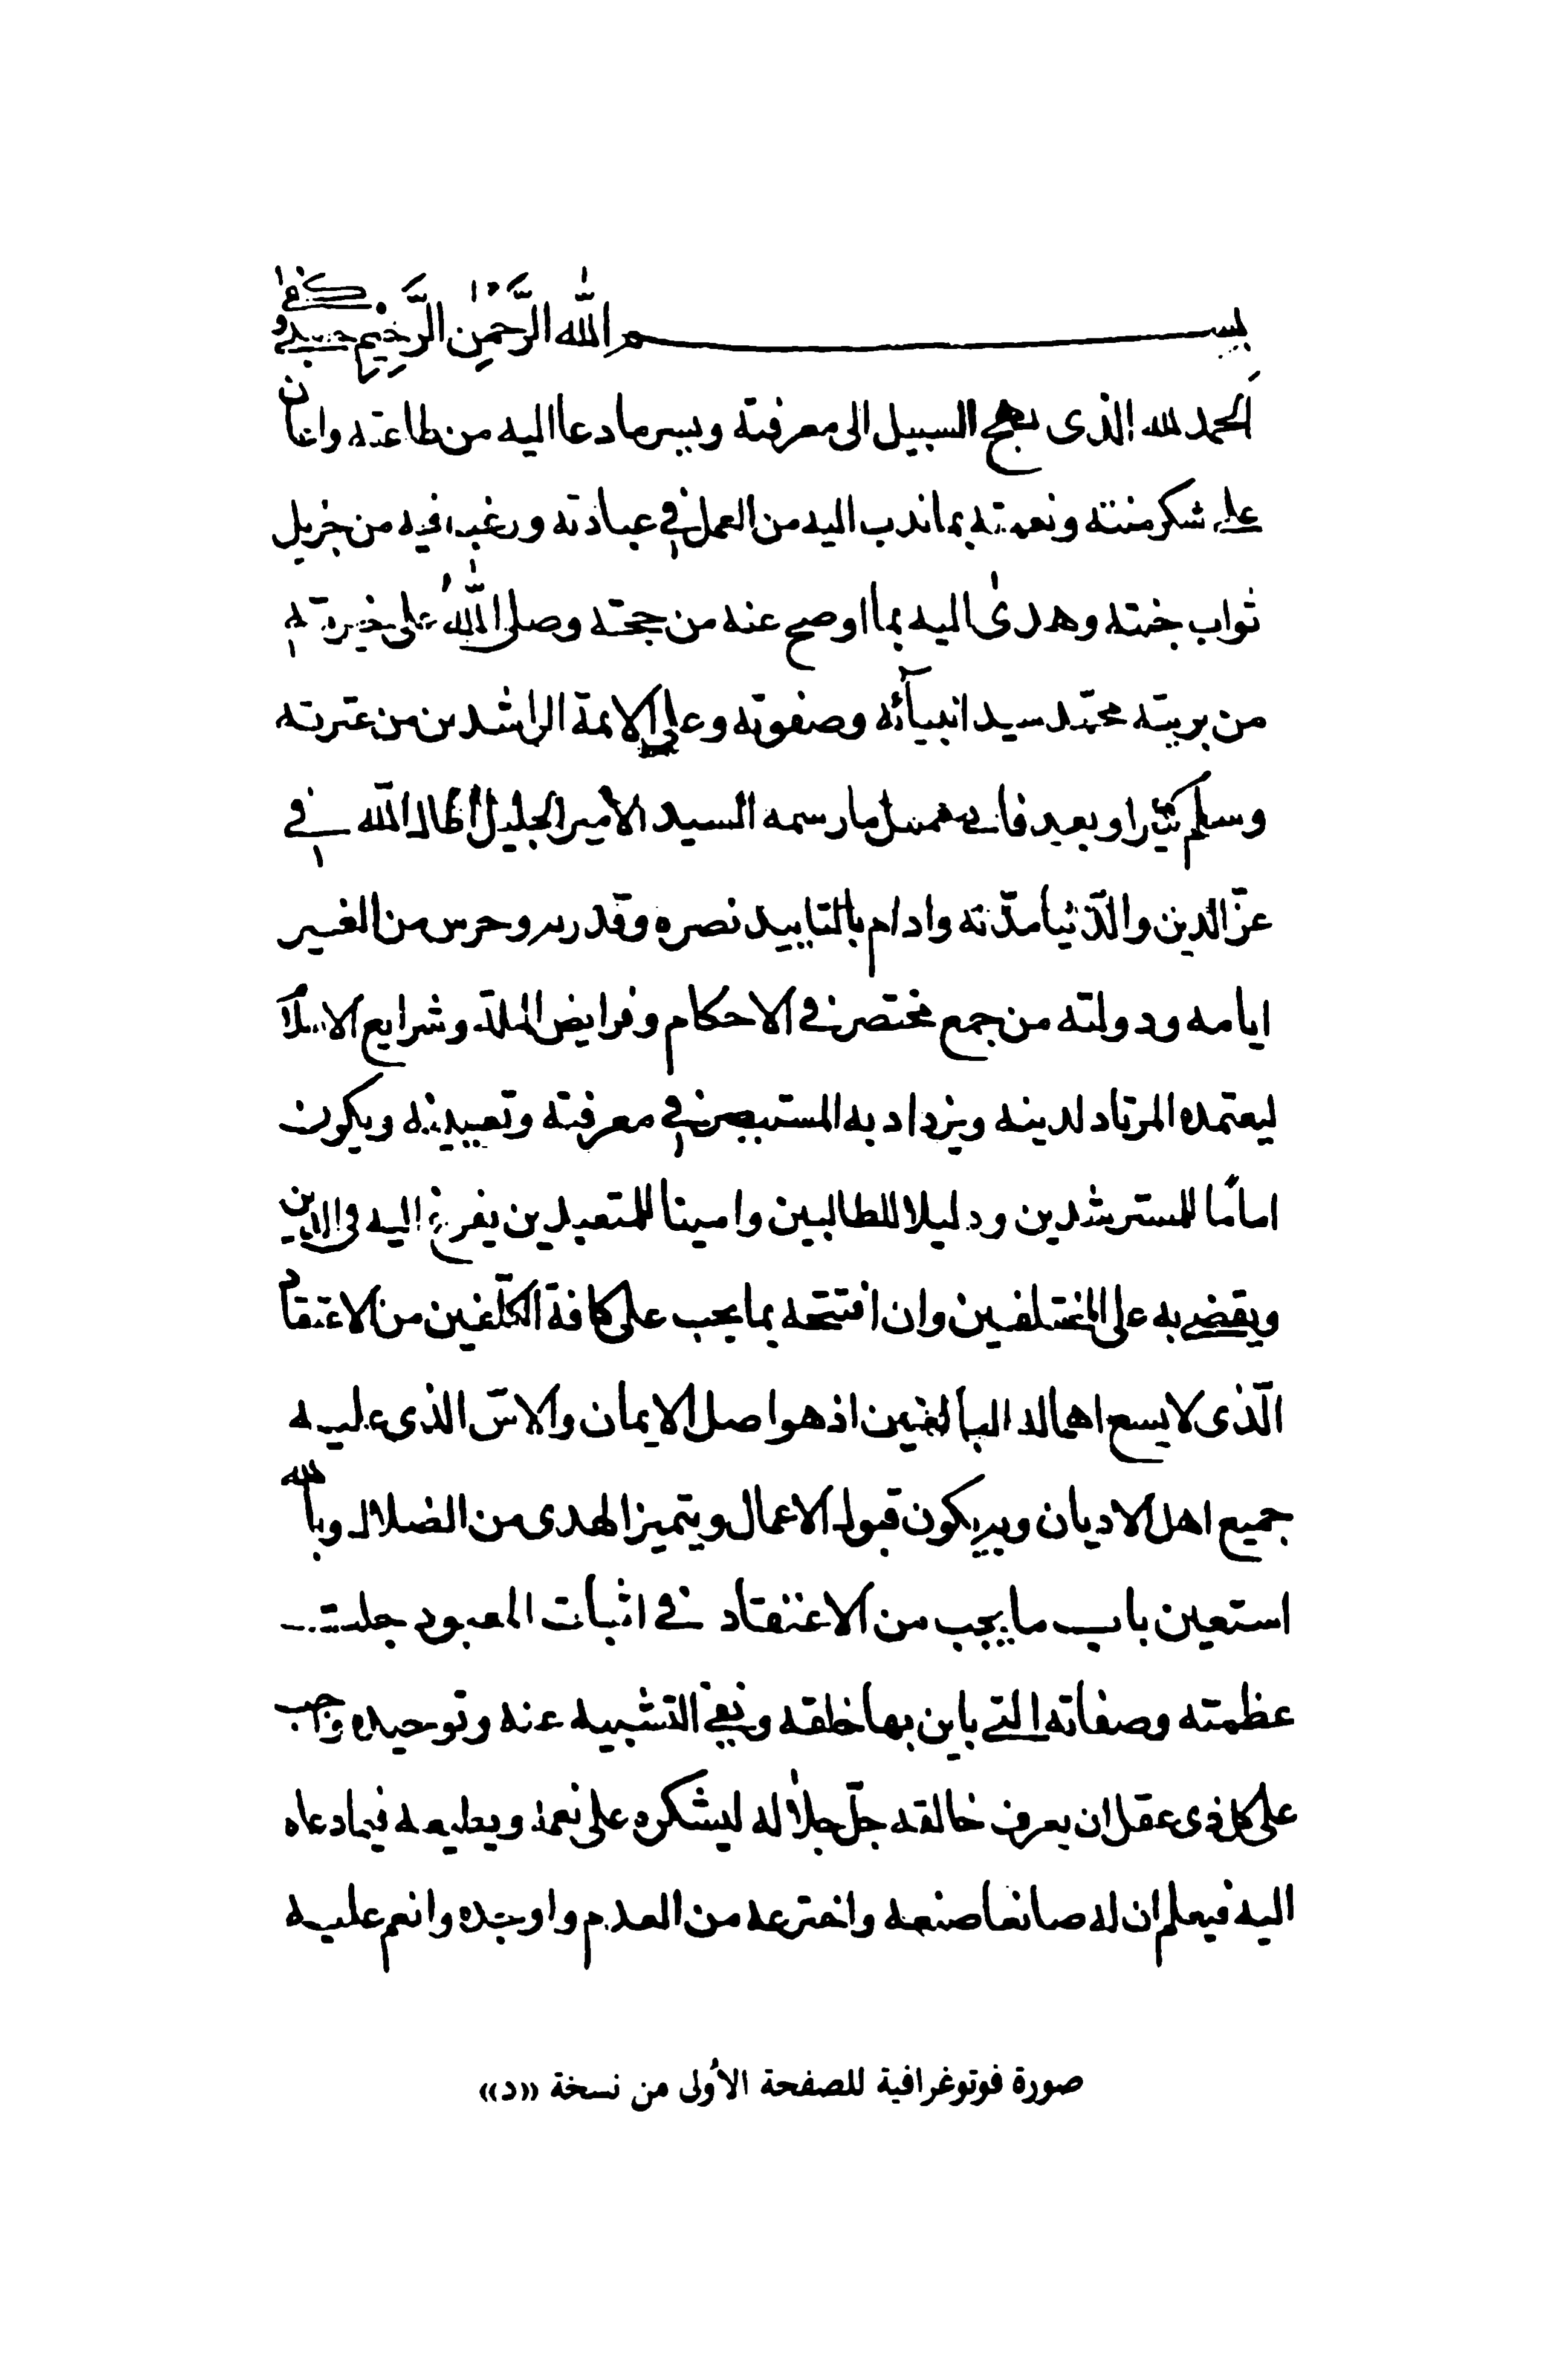 بسم الله الرحمن الرحيم
الحمد لله الذى نهج السبيل الى معرفته ويسر ما دعا اليه من طاعته واعان
على شكر منته ونعمته بما ندب اليه من العمل فى عبادته ورغب فيه من جزيل
ثواب جنته وهدىٰ اليه بما اوضح عنه من حجته وصلى اللّٰه على خيرته
من بريته محمّد سيد انبيآئه وصفوته وعلى الائمة الراشدين من عترته
وسلم كثيرا وبعد فانى ممتثل ما رسمه السيد الامير الجليل اطال اللّه فى
عزّ الدين والدّنيا مدّته وادام بالتاييد نصره وقدرته وحرس من الغير
ايامه ودولته من جمع مختصر فى الاحكام وفرايض الملة وشرايع الاسلام
ليعتمده المرتاد لدينه ويزداد به المستبصر فى معرفته ويقينه ويكون
امامًا للمسترشدين ودليلا للطالبين وامينا للمتعبدين يفزع اليه فى الدين
ويقضى به على المختلفين وان افتتحه بما يجب على كافة المكلّفين من الاعتقاد
الّذى لا يسع اهماله البالغين اذ هو اصل الايمان والاسّ الذى عليه
جميع اهل الاديان وبه يكون قبول الاعمال ويتميز الهدى من الضلال وبالله
استعين باب ما يجب من الاعتقاد فى اثبات المعبود جلت
عظمته وصفاته التى باين بها خلقه ونفى التشبيه عنه وتوحيده واجب
على كل ذى عقل ان يعرف خالقه جلّ جلاله ليشكره على نعمه ويطيعه فيما دعاه
اليه فيعلم ان له صانعا صنعه واخترعه من العدم واوجده وانعم عليه
صورة فوتوغرافية للصفحة الأولى من نسخة «د»